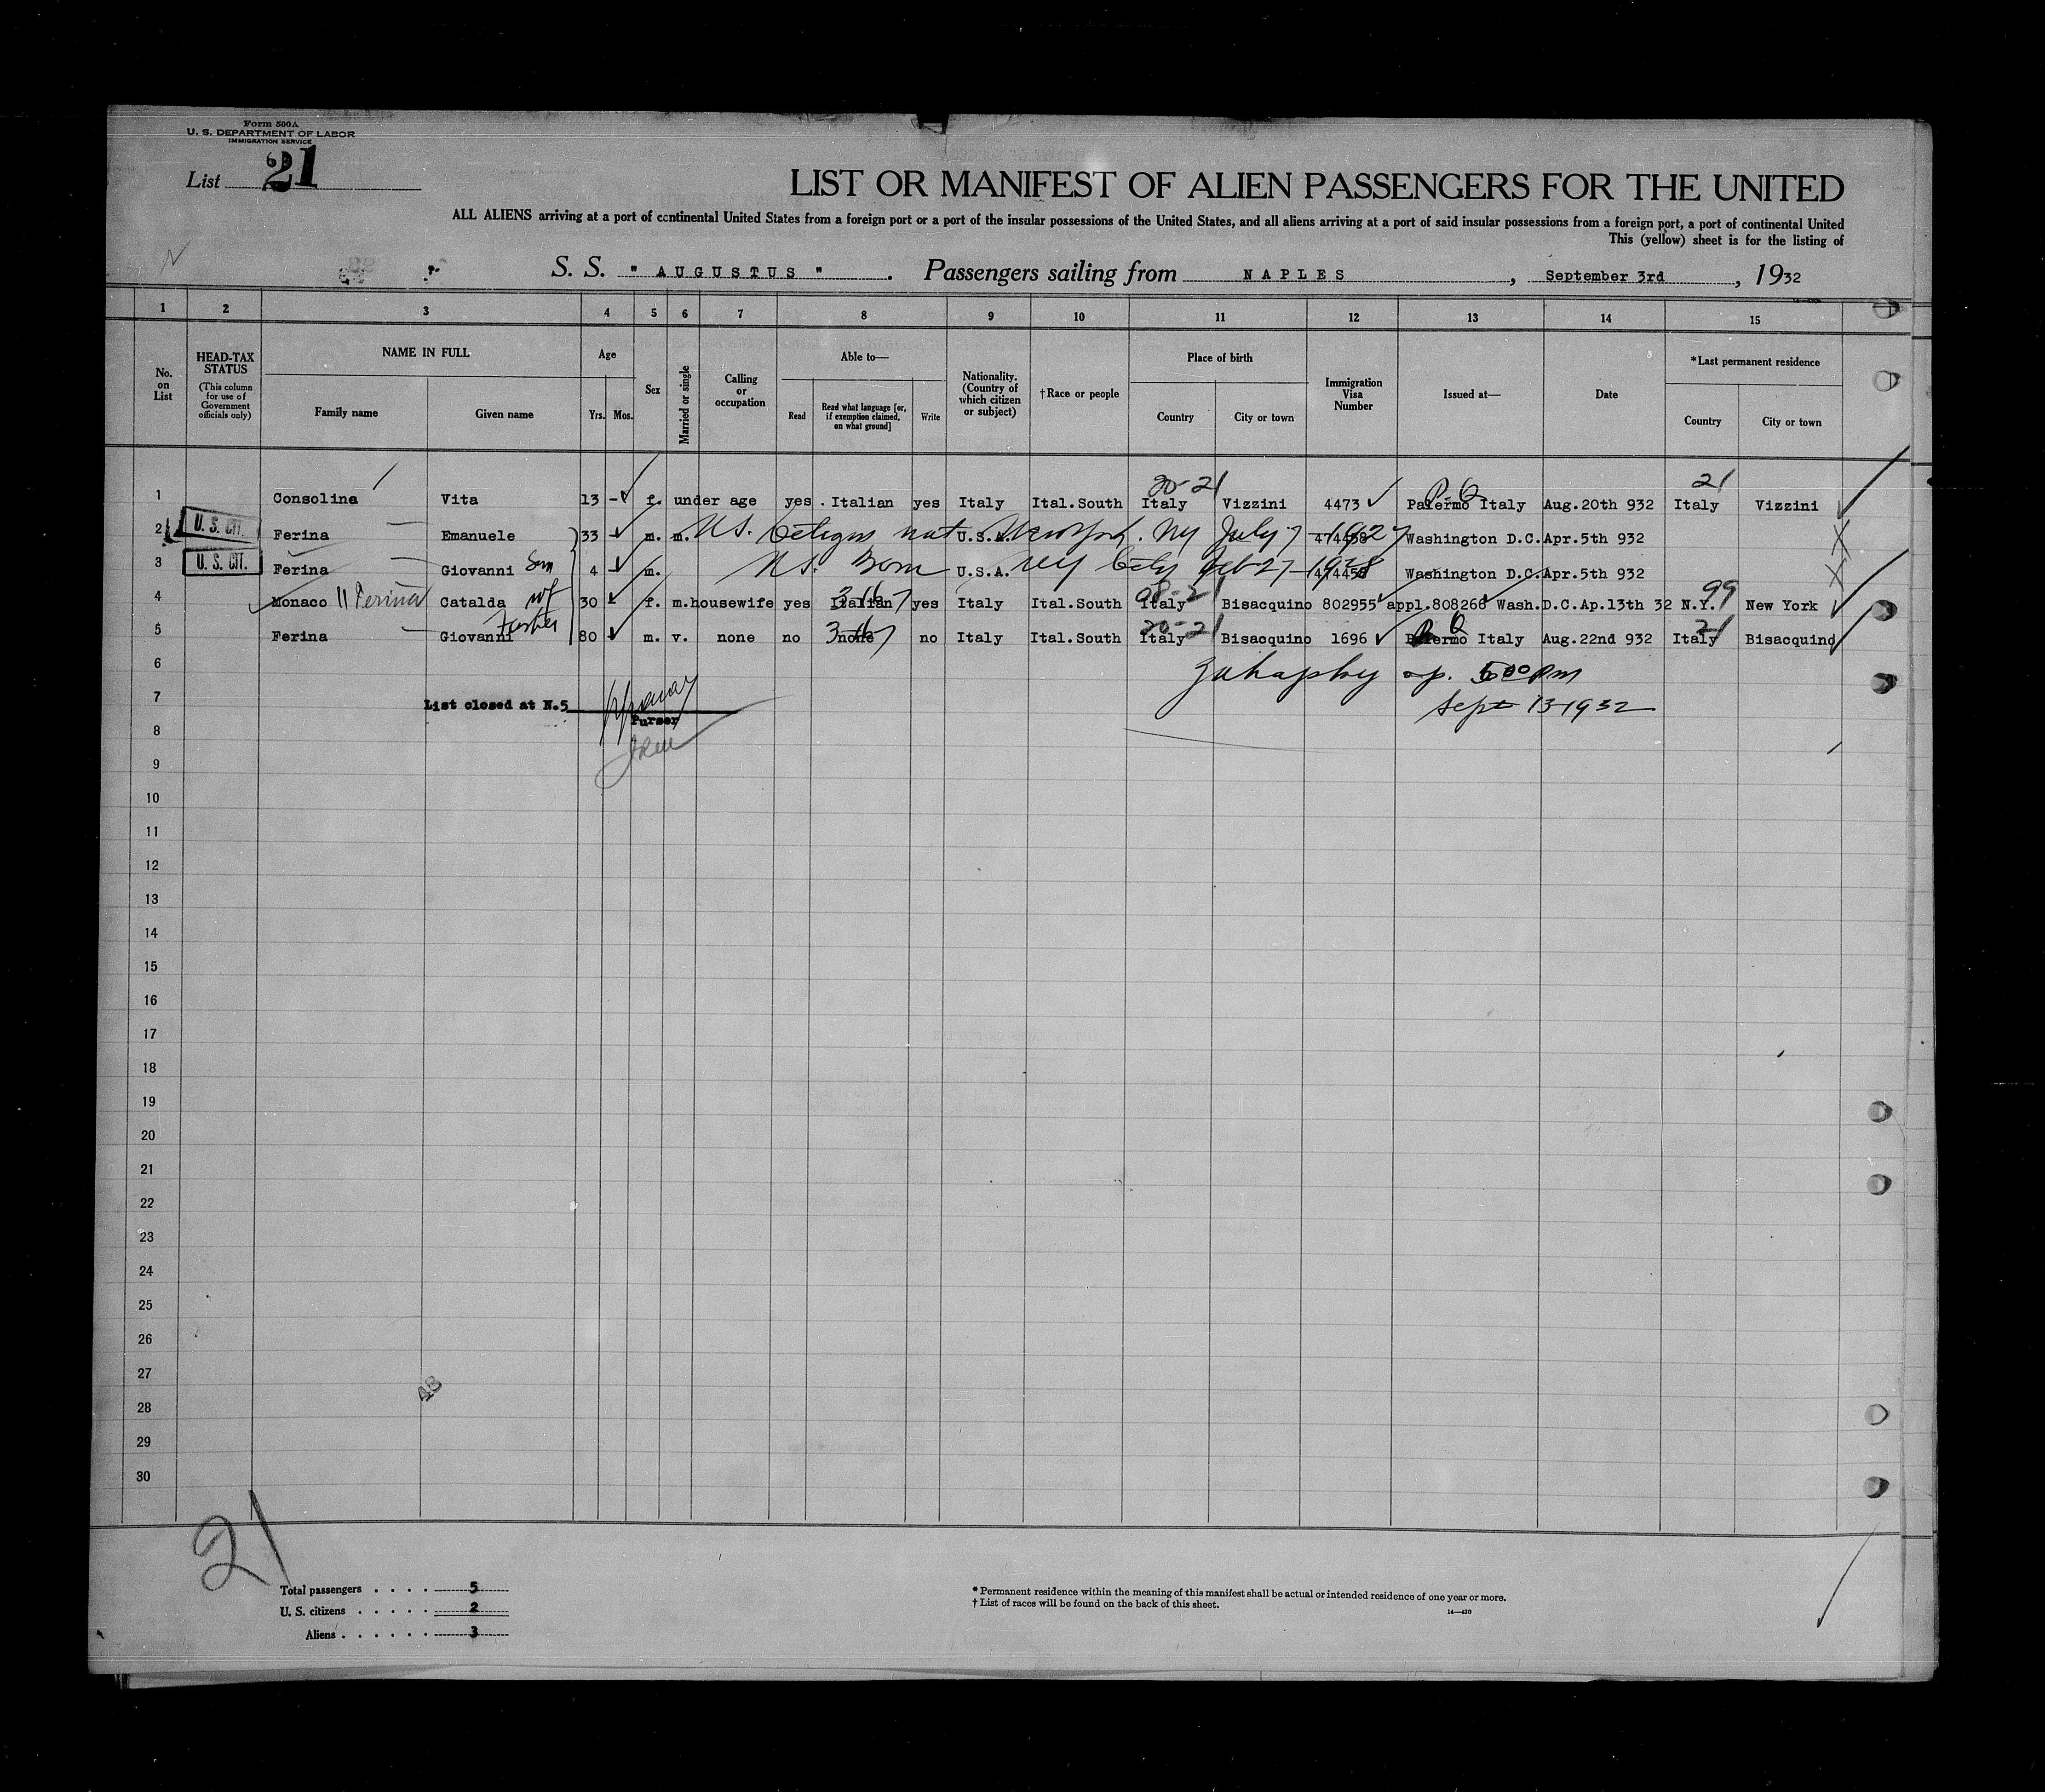 Form 500A
U. S. DEPARTMENT OF LABOR
IMMIGRATION SERVICE
List 21
LIST OR MANIFEST OF ALIEN PASSENGERS FOR THE UNITED
ALL ALIENS arriving at a port of continental United States from a foreign port or a port of the insular possessions of the United States, and all aliens arriving at a port of said insular possessions from a foreign port, a port of continental United
This (yellow) sheet is for the listing of
S. S. " AUGUSTUS " . Passengers sailing from NAPLES , September 3rd , 1932
1 2 3 4 5 6 7 8 9 10 11 12 13 14 15
No. on List
HEAD-TAX STATUS (This column for use of Government officials only)
NAME IN FULL
Family name Given name
Age
Yrs. Mos.
Sex
Married or single
Calling or occupation
Able to—
Read Read what language [or, if exemption claimed, on what ground] Write
Nationality. (Country of which citizen or subject)
†Race or people
Place of birth
Country City or town
Immigration Visa Number
Issued at—
Date
*Last permanent residence
Country City or town
20-21 P. Q 21
1 Consolina Vita 13 - f. under age yes . Italian yes Italy Ital.South Italy Vizzini 4473 Palermo Italy Aug.20th 932 Italy Vizzini
2 U. S. CIT. Ferina Emanuele 33 - m. m. U.S. U.S.A. New York. NY July 7 1927 474458 Washington D.C. Apr.5th 932
3 U. S. CIT. Ferina Giovanni Son 4 - m. U.S. Born U.S.A. NY City Feb-27-1928 Washington D.C. Apr.5th 932
4 Monaco || Ferina Catalda wf 30 - f. m. housewife yes Italian yes Italy Ital.South Italy Bisacquino 802955 appl.808266 Wash.D.C.Ap.13th 32 N.Y. 99 New York
5 Ferina Giovanni Father 80 m. v. none no none no Italy Ital.South Italy 20-21 Bisacquino 1696 Palermo Italy Aug.22nd 932 Italy 21 Bisacquino
6 500 Pm
7 List closed at N.5 Sept 13-1932
Purser
8
9
10
11
12
13
14
15
16
17
18
19
20
21
22
23
24
25
26
27
48
28
29
30
21
Total passengers . . . . 5
U. S. citizens . . . . . 2
Aliens . . . . . . 3
* Permanent residence within the meaning of this manifest shall be actual or intended residence of one year or more.
† List of races will be found on the back of this sheet.
14—430